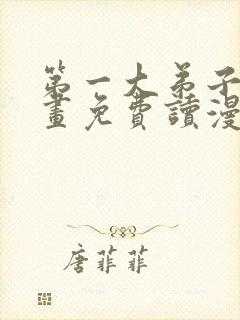 第一大弟子
畫免費讀漫
唐菲菲